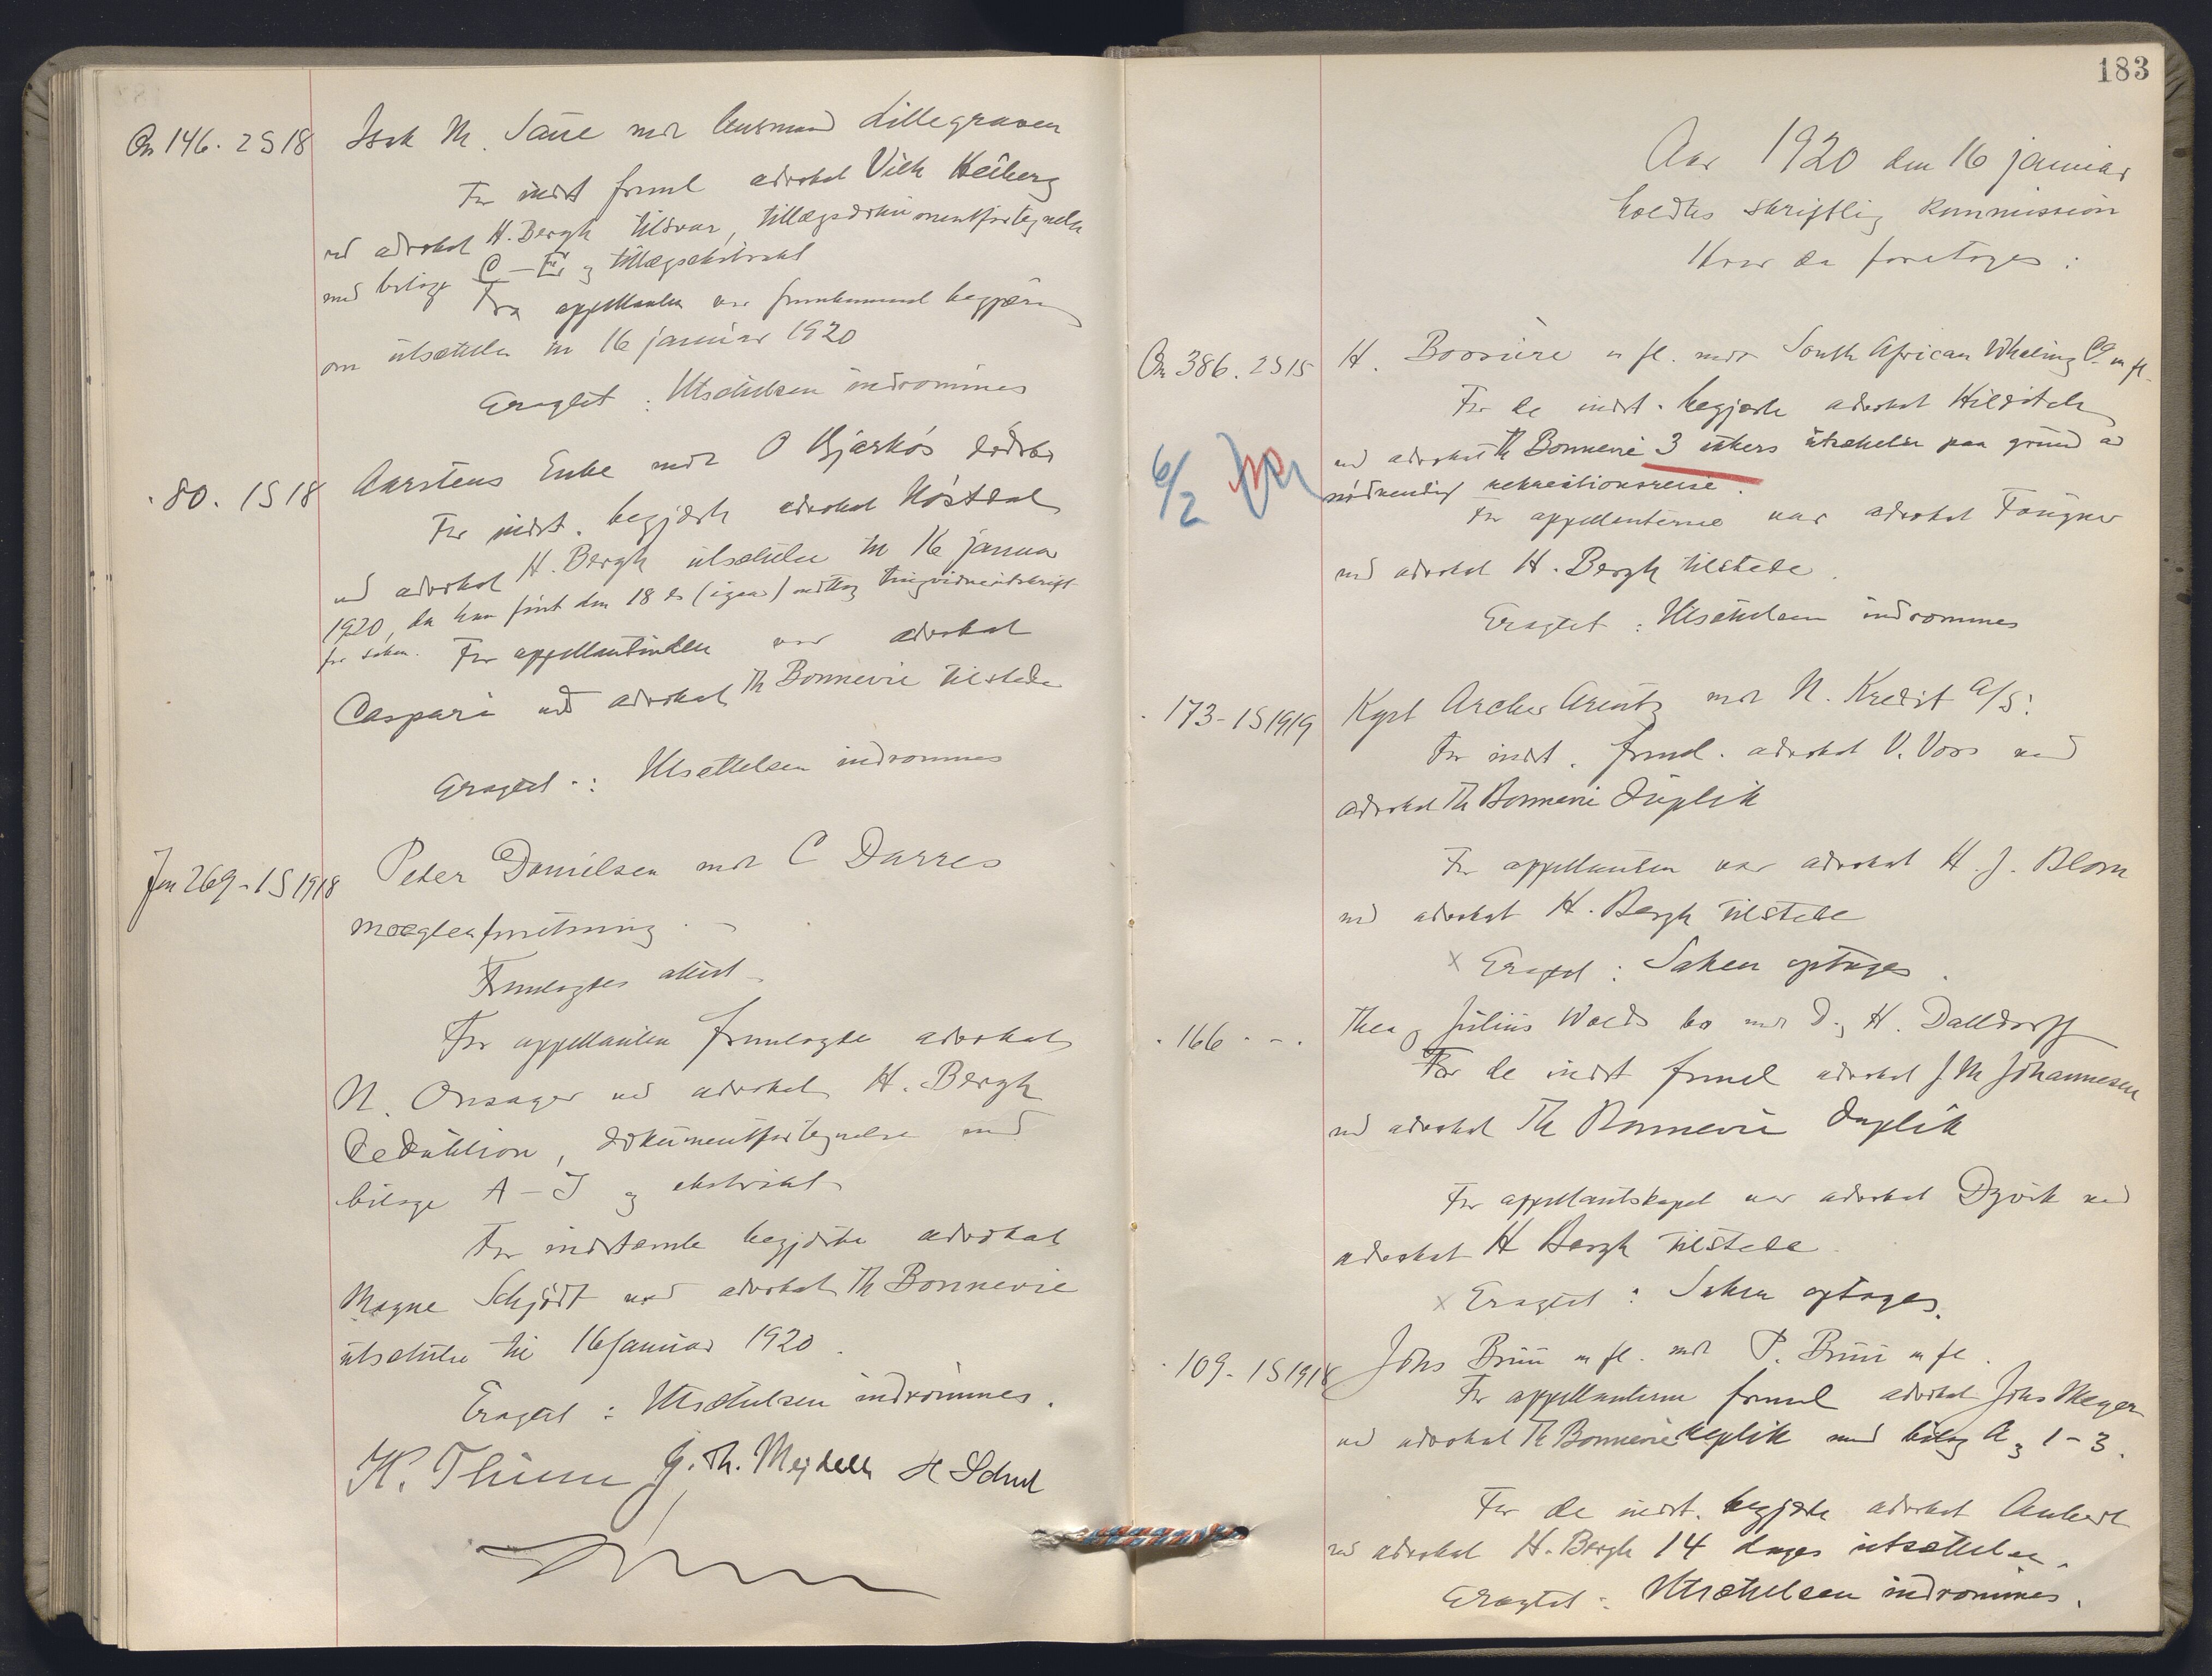 On 146. 2S 18
Isak M. Saue mot Lillegraven
For indst frml advokat Vilh Heiberg
ved advokat H. Bergh tilsvar, tillægsdokumentfortegnelse
med bilage C – E og tillægsekstrakt
Fra appellanten var fremkommet begjæring
om utsættelse til 16 januar 1920
Eragtet : Utsættelsen indrømmes
80. 1S 18
Aarstens Enke mot O Bjerkös dødsbo
For indst. begjærte advokat Höstdal
ved advokat H. Bergh utsættelse til 16 januar
1920, da han först den 18 ds (igaar) mottog tingsvidneutskrift
for saken. For appellantinden var advokat
Caspari ved advokat Th Bonnevie tilstede
Eragtet : Utsættelsen indrømmes
269 - 1S 1918
Peter Danielsen mot C Darres
mæglerforretning
Fremlagdes attest
For appellanten fremlagde advokat
N. Onsager ved advokat H. Bergh
Deduktion, dokumentfortegnelse med
bilage A – J og ekstrakt
For indstevnte begjærte advokat
Magne Schjödt ved advokat Th Bonnevie
utsættelse til 16 januar 1920.
Eragtet : Utsættelsen indrømmes.
K. Thiim G. Th. Mejdell H Schut
183
Aar 1920 den 16 januar
holdtes skriftlig kommission
Hvor da foretoges :
On 386. 2S 15
H. Bossière m fl. mot South African Whaling Co m fl.
For de indst. begjærte advokat Hilditch
ved advokat Th Bonnevie 3 ukers utsættelse paa grund av
nödvendig rekreationsreise.
6/2
For appellanterne var advokat Fougner
ved advokat H. Bergh tilstede.
Eragtet : Utsættelsen indrømmes
173 - 1S 1919
Kapt Archer Arentz mot N. Kredit A/S:
For indst. freml. advokat V. Voss ved
advokat Th Bonnevie Duplik
For appellanten var advokat H. J. Blom
ved advokat H. Bergh tilstede
x Eragtet : Saken optages.
166 - - .
Thea og Julius Wolds bo mot D. H. Dalldorff
For de indst freml advokat J M Johannesen
ved advokat Th Bonnevie Duplik
For appellantskapet var advokat ved
advokat H Bergh tilstede.
x Eragtet : Saken optages.
109 - 1S 1918
Johs Bruu m fl. mot P. Bruu m fl.
For appellanterne freml advokat Johs Meyer
ved advokat Th Bonnevie Replik med bilag A og 1 – 3.
For de indst. begjærte advokat Aubert
ved advokat H. Bergh 14 dages utsættelse.
Eragtet : Utsættelsen indrømmes.